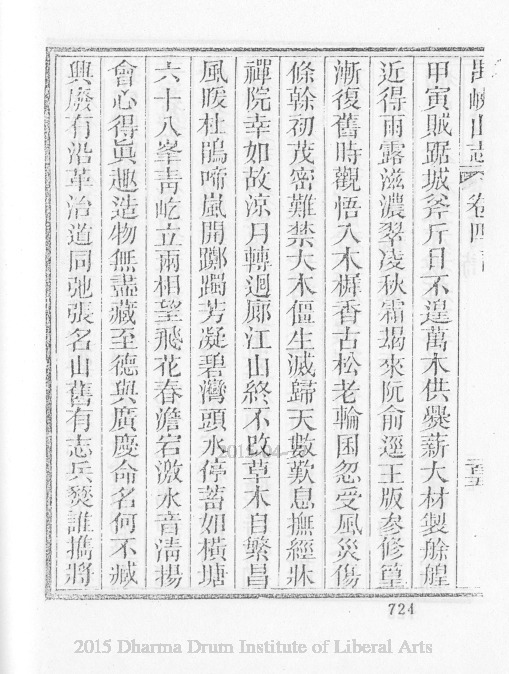 禺峽山志　卷四
甲寅賊踞城斧斤日不遑萬木供爨薪大材製艅艎
近得雨露滋濃翠凌秋霜朅來阮俞逕王版叅修篁
漸復舊時觀悟入木樨香古松老輪囷忽受風災傷
條榦初茂密難禁大木僵生滅歸天數歎息撫經牀
禪院幸如故涼月轉迴廊江山終不改草木自繁昌
風暖杜鵑啼嵐開躑躅芳凝碧灣頭水停蓄如橫塘
六十八峯靑屹立兩相望飛花春澹宕激水音淸揚
會心得眞趣造物無盡藏至德與廣慶命名何不臧
興廢有沿革治道同弛張名山舊有志兵燹誰攜將
724
2015 Dharma Drum Institute of Liberal Arts